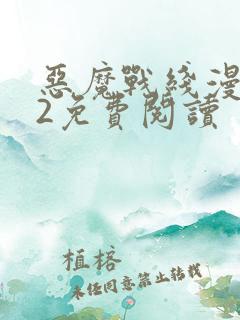 惡魔戰綫漫
2免費閱讀
植榕
未经同意禁止转载